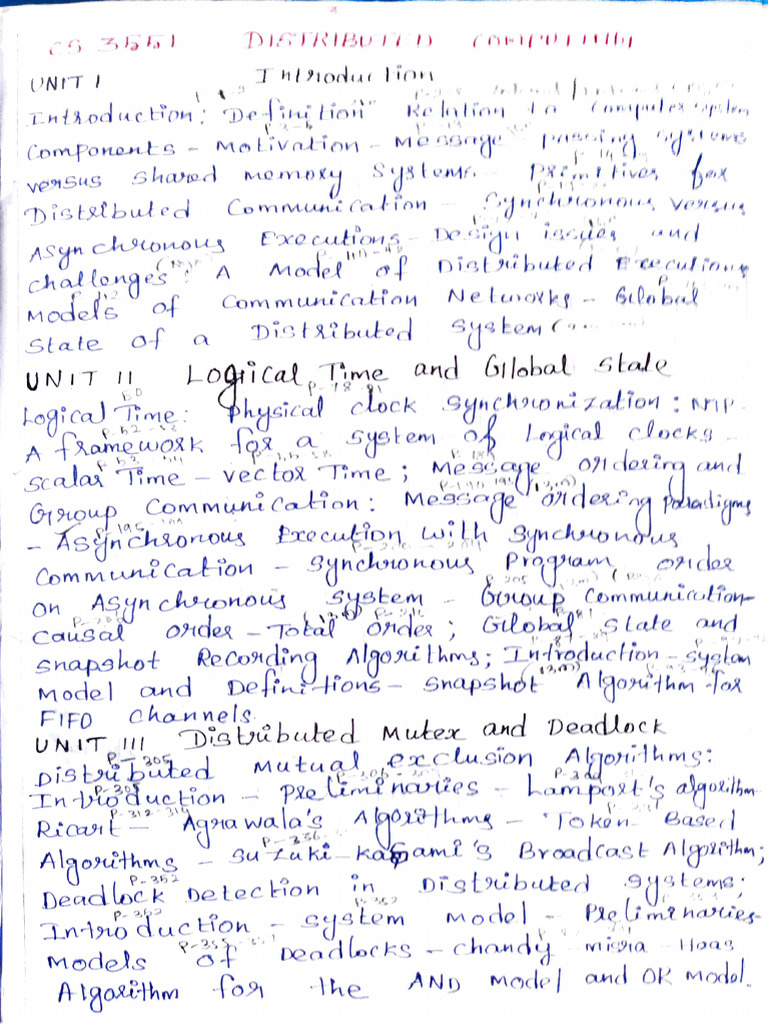 CS 3551 DISTRIBUTED COMPUTING
UNIT I Introduction
Introduction: Definition Relation to Computer system
Components - Motivation - Message passing systems
versus shared memory Systems - Primitives for
Distributed Communication - Synchronous versus
Asynchronous Executions - Design issues and
challenges: A Model of Distributed Executions
Models of Communication Networks - Global
State of a Distributed system
UNIT II Logical Time and Global State
P-78-81
Logical Time: Physical clock synchronization: NTP
A framework for a system of Logical clocks
Scalar Time - vector Time; Message ordering and
Group Communication: Message ordering paradigms
P-195
- Asynchronous Execution with Synchronous
Communication - Synchronous Program order
P-205
on Asynchronous system - Group Communication
Causal order - Total order; Global State and
snapshot Recording Algorithms; Introduction - system
Model and Definitions - snapshot Algorithm for
FIFO channels
UNIT III Distributed Mutex and Deadlock
P-305
Distributed mutual exclusion Algorithms:
P-305
Introduction - Preliminaries - Lamport's algorithm
P-312-314
Ricart - Agrawala's Algorithms - Token Based
P-336
Algorithms - suzuki-kasami's Broadcast Algorithm;
P-352
Deadlock Detection in Distributed systems;
P-352
Introduction - system model - Preliminaries
Models of Deadlocks - chandy misra - Haas
Algorithm for the AND model and OR model.